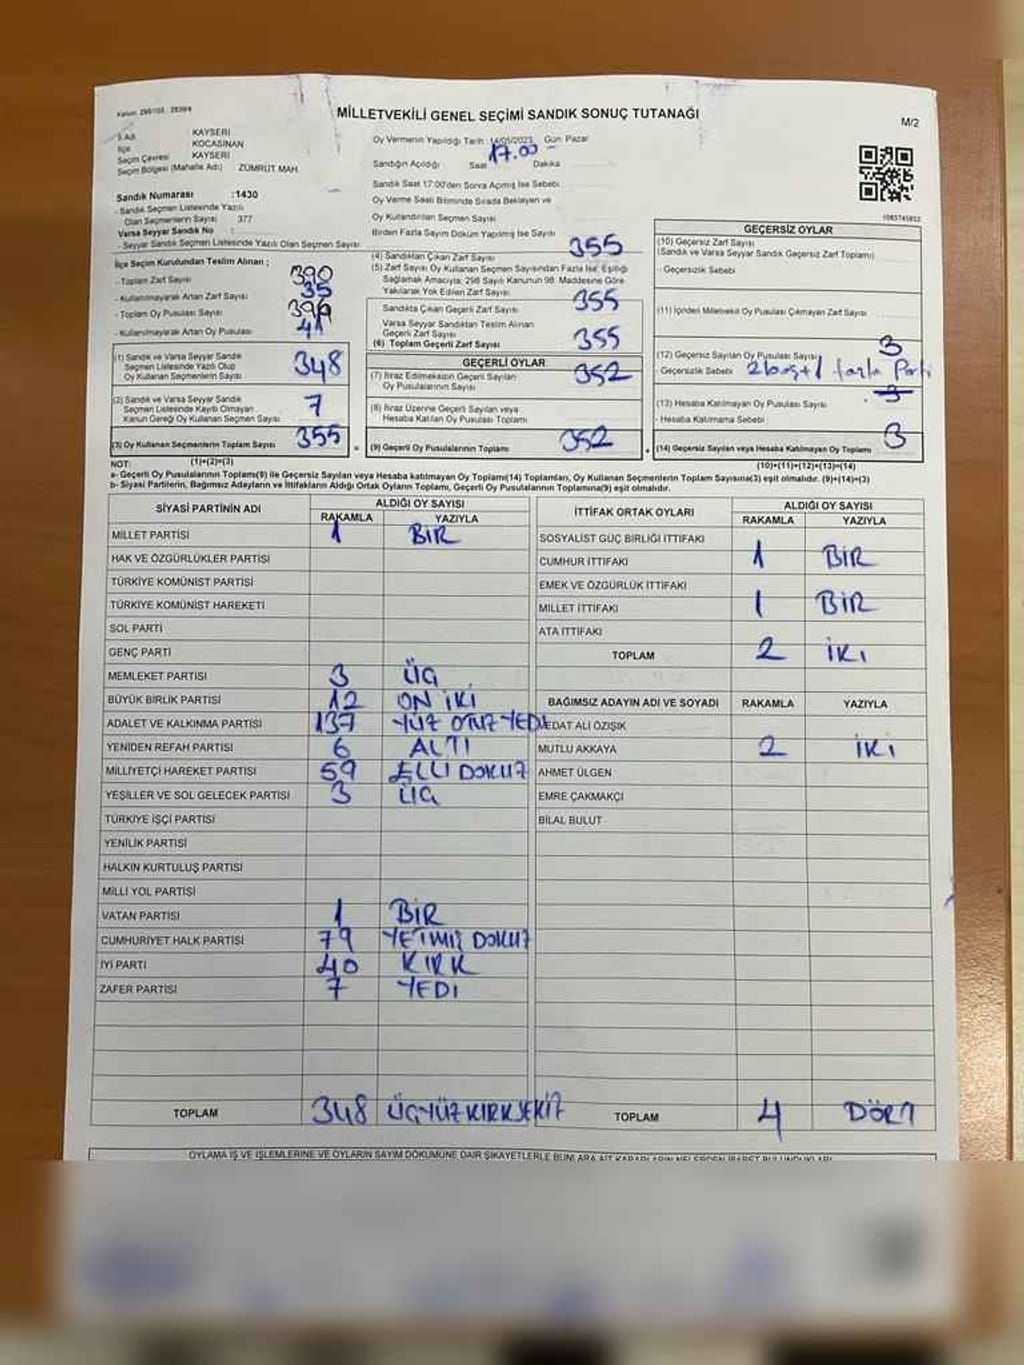 MİLLETVEKİLİ GENEL SEÇİMİ SANDIK SONUÇ TUTANAĞI
M/2
İl Adı KAYSERİ
İlçe KOCASİNAN
Seçim Çevresi KAYSERİ
Seçim Bölgesi (Mahalle Adı) ZÜMRÜT MAH
Sandık Numarası :1430
- Sandık Seçmen Listesinde Yazılı
Olan Seçmenlerin Sayısı 377
Varsa Seyyar Sandık No :
- Seyyar Sandık Seçmen Listesinde Yazılı Olan Seçmen Sayısı
Oy Vermenin Yapıldığı Tarih :14/05/2023 Gün: Pazar
Sandığın Açıldığı Saat 17.00 Dakika
Sandık Saat 17:00'den Sonra Açılmış İse Sebebi
Oy Verme Saati Bitiminde Sırada Bekleyen ve
Oy Kullandırılan Seçmen Sayısı
Birden Fazla Sayım Döküm Yapılmış İse Sayısı
1083745852
İlçe Seçim Kurulundan Teslim Alınan ;
- Toplam Zarf Sayısı 390
- Kullanılmayarak Artan Zarf Sayısı 35
- Toplam Oy Pusulası Sayısı
- Kullanılmayarak Artan Oy Pusulası 41
(1) Sandık ve Varsa Seyyar Sandık
Seçmen Listesinde Yazılı Olup
Oy Kullanan Seçmenlerin Sayısı 348
(2) Sandık ve Varsa Seyyar Sandık
Seçmen Listesinde Kayıtlı Olmayan
Kanun Gereği Oy Kullanan Seçmen Sayısı 7
(3) Oy Kullanan Seçmenlerin Toplam Sayısı 355
(4) Sandıktan Çıkan Zarf Sayısı 355
(5) Zarf Sayısı Oy Kullanan Seçmen Sayısından Fazla İse, Eşitliği
Sağlamak Amacıyla, 298 Sayılı Kanunun 98. Maddesine Göre
Yakılarak Yok Edilen Zarf Sayısı
Sandıkta Çıkan Geçerli Zarf Sayısı 355
Varsa Seyyar Sandıktan Teslim Alınan
Geçerli Zarf Sayısı
(6) Toplam Geçerli Zarf Sayısı 355
GEÇERLİ OYLAR
(7) İtiraz Edilmeksizin Geçerli Sayılan
Oy Pusulalarının Sayısı 352
(8) İtiraz Üzerine Geçerli Sayılan veya
Hesaba Katılan Oy Pusulası Toplamı
(9) Geçerli Oy Pusulalarının Toplamı 352
GEÇERSİZ OYLAR
(10) Geçersiz Zarf Sayısı
(Sandık ve Varsa Seyyar Sandık Geçersiz Zarf Toplamı)
- Geçersizlik Sebebi
(11) İçinden Milletvekili Oy Pusulası Çıkmayan Zarf Sayısı
(12) Geçersiz Sayılan Oy Pusulası Sayısı 3
- Geçersizlik Sebebi 2 boş+1 fazla Parti
(13) Hesaba Katılmayan Oy Pusulası Sayısı
- Hesaba Katılmama Sebebi
(14) Geçersiz Sayılan veya Hesaba Katılmayan Oy Toplamı 3
NOT: (1)+(2)=(3) (10)+(11)+(12)+(13)=(14)
a- Geçerli Oy Pusulalarının Toplamı(9) ile Geçersiz Sayılan veya Hesaba katılmayan Oy Toplamı(14) Toplamları, Oy Kullanan Seçmenlerin Toplam Sayısına(3) eşit olmalıdır. (9)+(14)=(3)
b- Siyasi Partilerin, Bağımsız Adayların ve İttifakların Aldığı Ortak Oyların Toplamı, Geçerli Oy Pusulalarının Toplamına(9) eşit olmalıdır.
SİYASİ PARTİNİN ADI ALDIĞI OY SAYISI
RAKAMLA YAZIYLA
MİLLET PARTİSİ 1 BİR
HAK VE ÖZGÜRLÜKLER PARTİSİ
TÜRKİYE KOMÜNİST PARTİSİ
TÜRKİYE KOMÜNİST HAREKETİ
SOL PARTİ
GENÇ PARTİ
MEMLEKET PARTİSİ 3 ÜÇ
BÜYÜK BİRLİK PARTİSİ 12 ON İKİ
ADALET VE KALKINMA PARTİSİ 137 YÜZ OTUZ YEDİ
YENİDEN REFAH PARTİSİ 6 ALTI
MİLLİYETÇİ HAREKET PARTİSİ 59 ELLİ DOKUZ
YEŞİLLER VE SOL GELECEK PARTİSİ 3 ÜÇ
TÜRKİYE İŞÇİ PARTİSİ
YENİLİK PARTİSİ
HALKIN KURTULUŞ PARTİSİ
MİLLİ YOL PARTİSİ
VATAN PARTİSİ 1 BİR
CUMHURİYET HALK PARTİSİ 79 YETMİŞ DOKUZ
İYİ PARTİ 40 KIRK
ZAFER PARTİSİ 7 YEDİ
TOPLAM 348 ÜÇYÜZ KIRK SEKİZ
İTTİFAK ORTAK OYLARI ALDIĞI OY SAYISI
RAKAMLA YAZIYLA
SOSYALİST GÜÇ BİRLİĞİ İTTİFAKI
CUMHUR İTTİFAKI 1 BİR
EMEK VE ÖZGÜRLÜK İTTİFAKI
MİLLET İTTİFAKI 1 BİR
ATA İTTİFAKI
TOPLAM 2 İKİ
BAĞIMSIZ ADAYIN ADI VE SOYADI RAKAMLA YAZIYLA
EDAT ALİ ÖZIŞIK
MUTLU AKKAYA 2 İKİ
AHMET ÜLGEN
EMRE ÇAKMAKÇI
BİLAL BULUT
TOPLAM 4 DÖRT
OYLAMA İŞ VE İŞLEMLERİNE VE OYLARIN SAYIM DÖKÜMÜNE DAİR ŞİKAYETLERLE BUNLARA AİT KARARLARIN NELERDEN İBARET BULUNDUKLARI